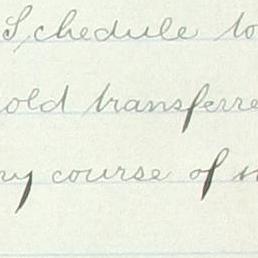 Schedule to
old transferre
ny course of